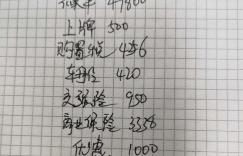 47800
上牌 500
购置税 4256
车船 420
交强险 950
商业保险 3358
优惠 1000